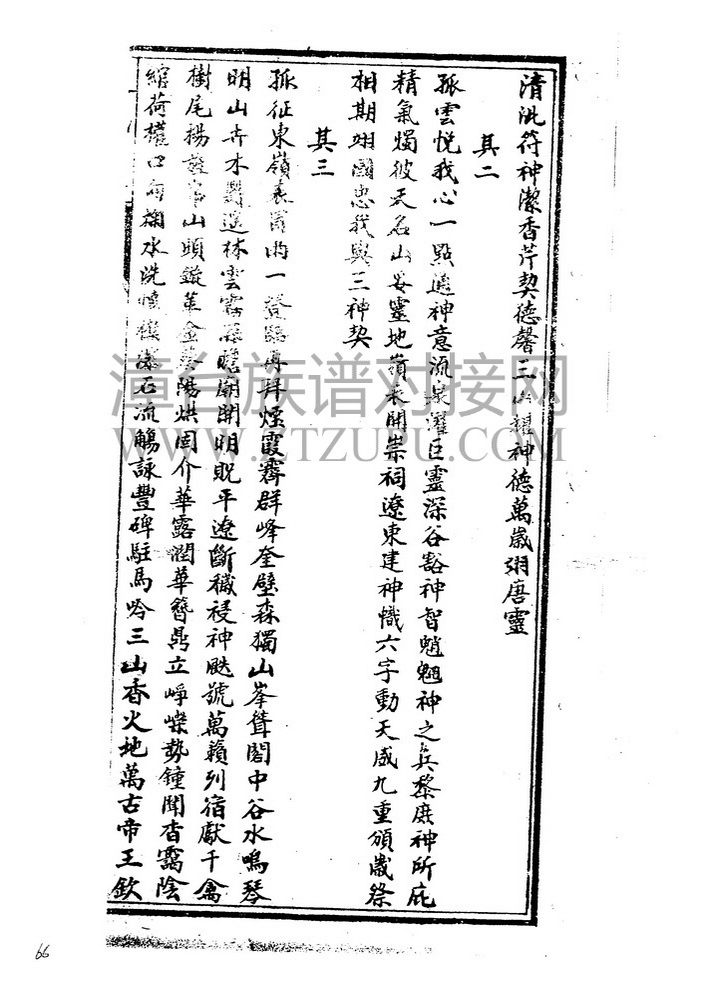 清沘符神潔香芹契德馨三山耀神德萬歲翊唐靈
其二
孤雲悅我心一點通神意流泉濯巨靈深谷豁神智魈魍神之兵黎庶神所庇
精氣燭彼天名山妥靈地嶺表開崇祠遼東建神幟六字動天威九重頒歲祭
相期翊國忠我與三神契
其三
孤征東嶺表 雨一登臨再拜煙霞霽群峰奎壁森獨山峯聳閣中谷水鳴琴
明山卉木 遥林雲霧 瞻廟開明貺平遼斷穢祲神颷號萬籟列宿獻千禽
樹尾揚 山頭鏇 金 陽烘岡介華露潤華簪鼎立崢嶸勢鐘聞杳靄陰
綰荷權 掬水洗 石流觴詠豐碑駐馬吟三山香火地萬古帝王欽
漳台族谱对接网
WWW.ZTZUPU.COM
66